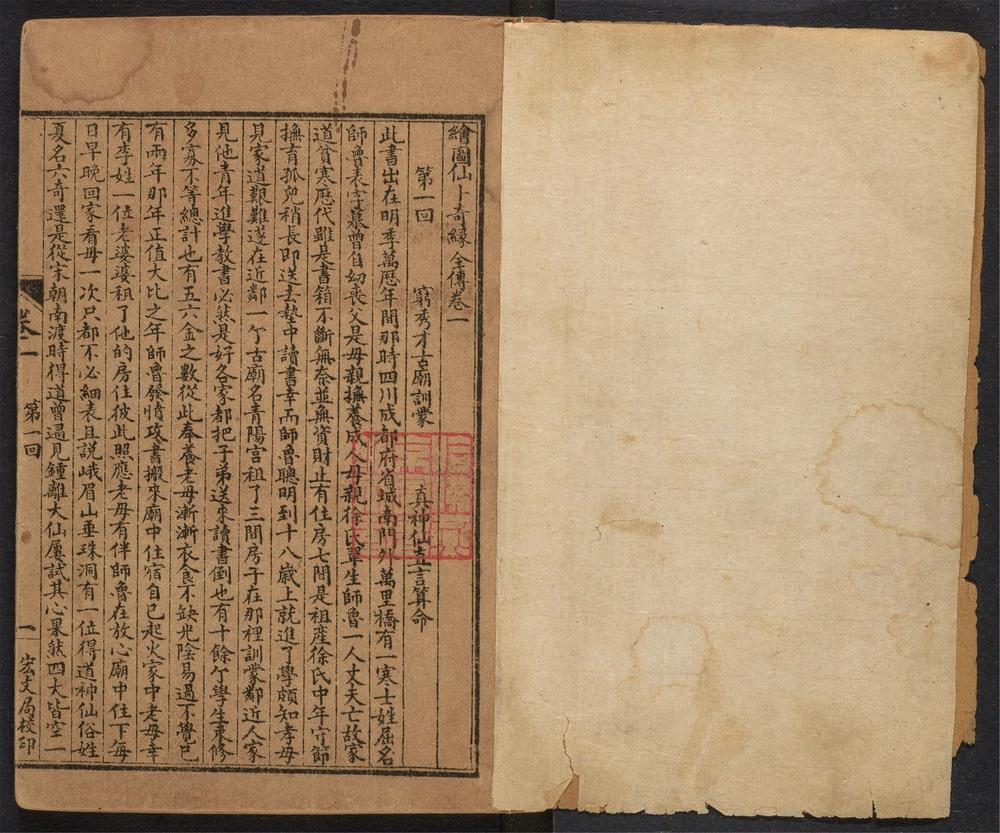 繪圖仙卜奇緣全傳卷一
第一回　窮秀才古廟訓蒙　真神仙直言算命
此書出在明季萬歷年間那時四川成都府省城南門外萬里橋有一寒士姓屈名
師魯表字慕曾自幼喪父是母親撫養成人母親徐氏單生師魯一人丈夫亡故家
道貧寒歷代雖是書箱不斷無奈並無資財止有住房七間是祖產徐氏中年守節
撫育孤兒稍長即送去塾中讀書幸而師魯聰明到十八歲上就進了學頗知孝母
見家道艱難遂在近鄰一个古廟名青陽宫租了三間房子在那裡訓蒙鄰近人家
見他青年進學教書必然是好各家都把子弟送來讀書倒也有十餘个學生束修
多寡不等總計也有五六金之數從此奉養老母漸漸衣食不缺光陰易過不覺已
有兩年那年正值大比之年師魯發憤攻書搬來廟中住宿自已起火家中老母幸
有李姓一位老婆婆租了他的房住彼此照應老母有伴師魯在放心廟中住下每
日早晚回家看母一次只都不必細表且説峨眉山垂珠洞有一位得道神仙俗姓
夏名六奇還是從宋朝南渡時得道曾遇見鍾離大仙屢試其心果然四大皆空一
卷一　第一回　一　宏文局校印